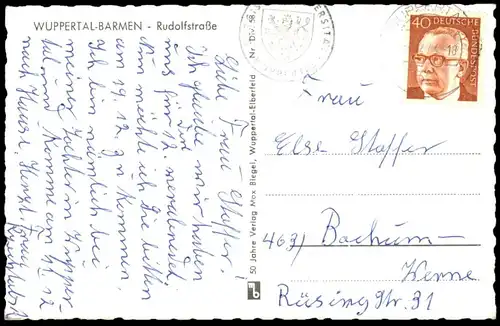 WUPPERTAL-BARMEN - Rudolfstraße
Liebe Frau Stoffer!
Ich glaube wir haben
uns für
den 12. verabredet
Nun möchte ich Sie bitten
am 19.12. zu kommen.
Ich bin nämlich bei
meiner Tochter in Wupper-
tal und komme am 12
nach Hause. Herzl. Gruß
50 Jahre Verlag Max Biegel, Wuppertal-Elberfeld Nr. Div. 58
40 DEUTSCHE
BUNDESPOST
Frau
Else Stoffer
463) Bochum-
Werne
Rüsing Str. 31